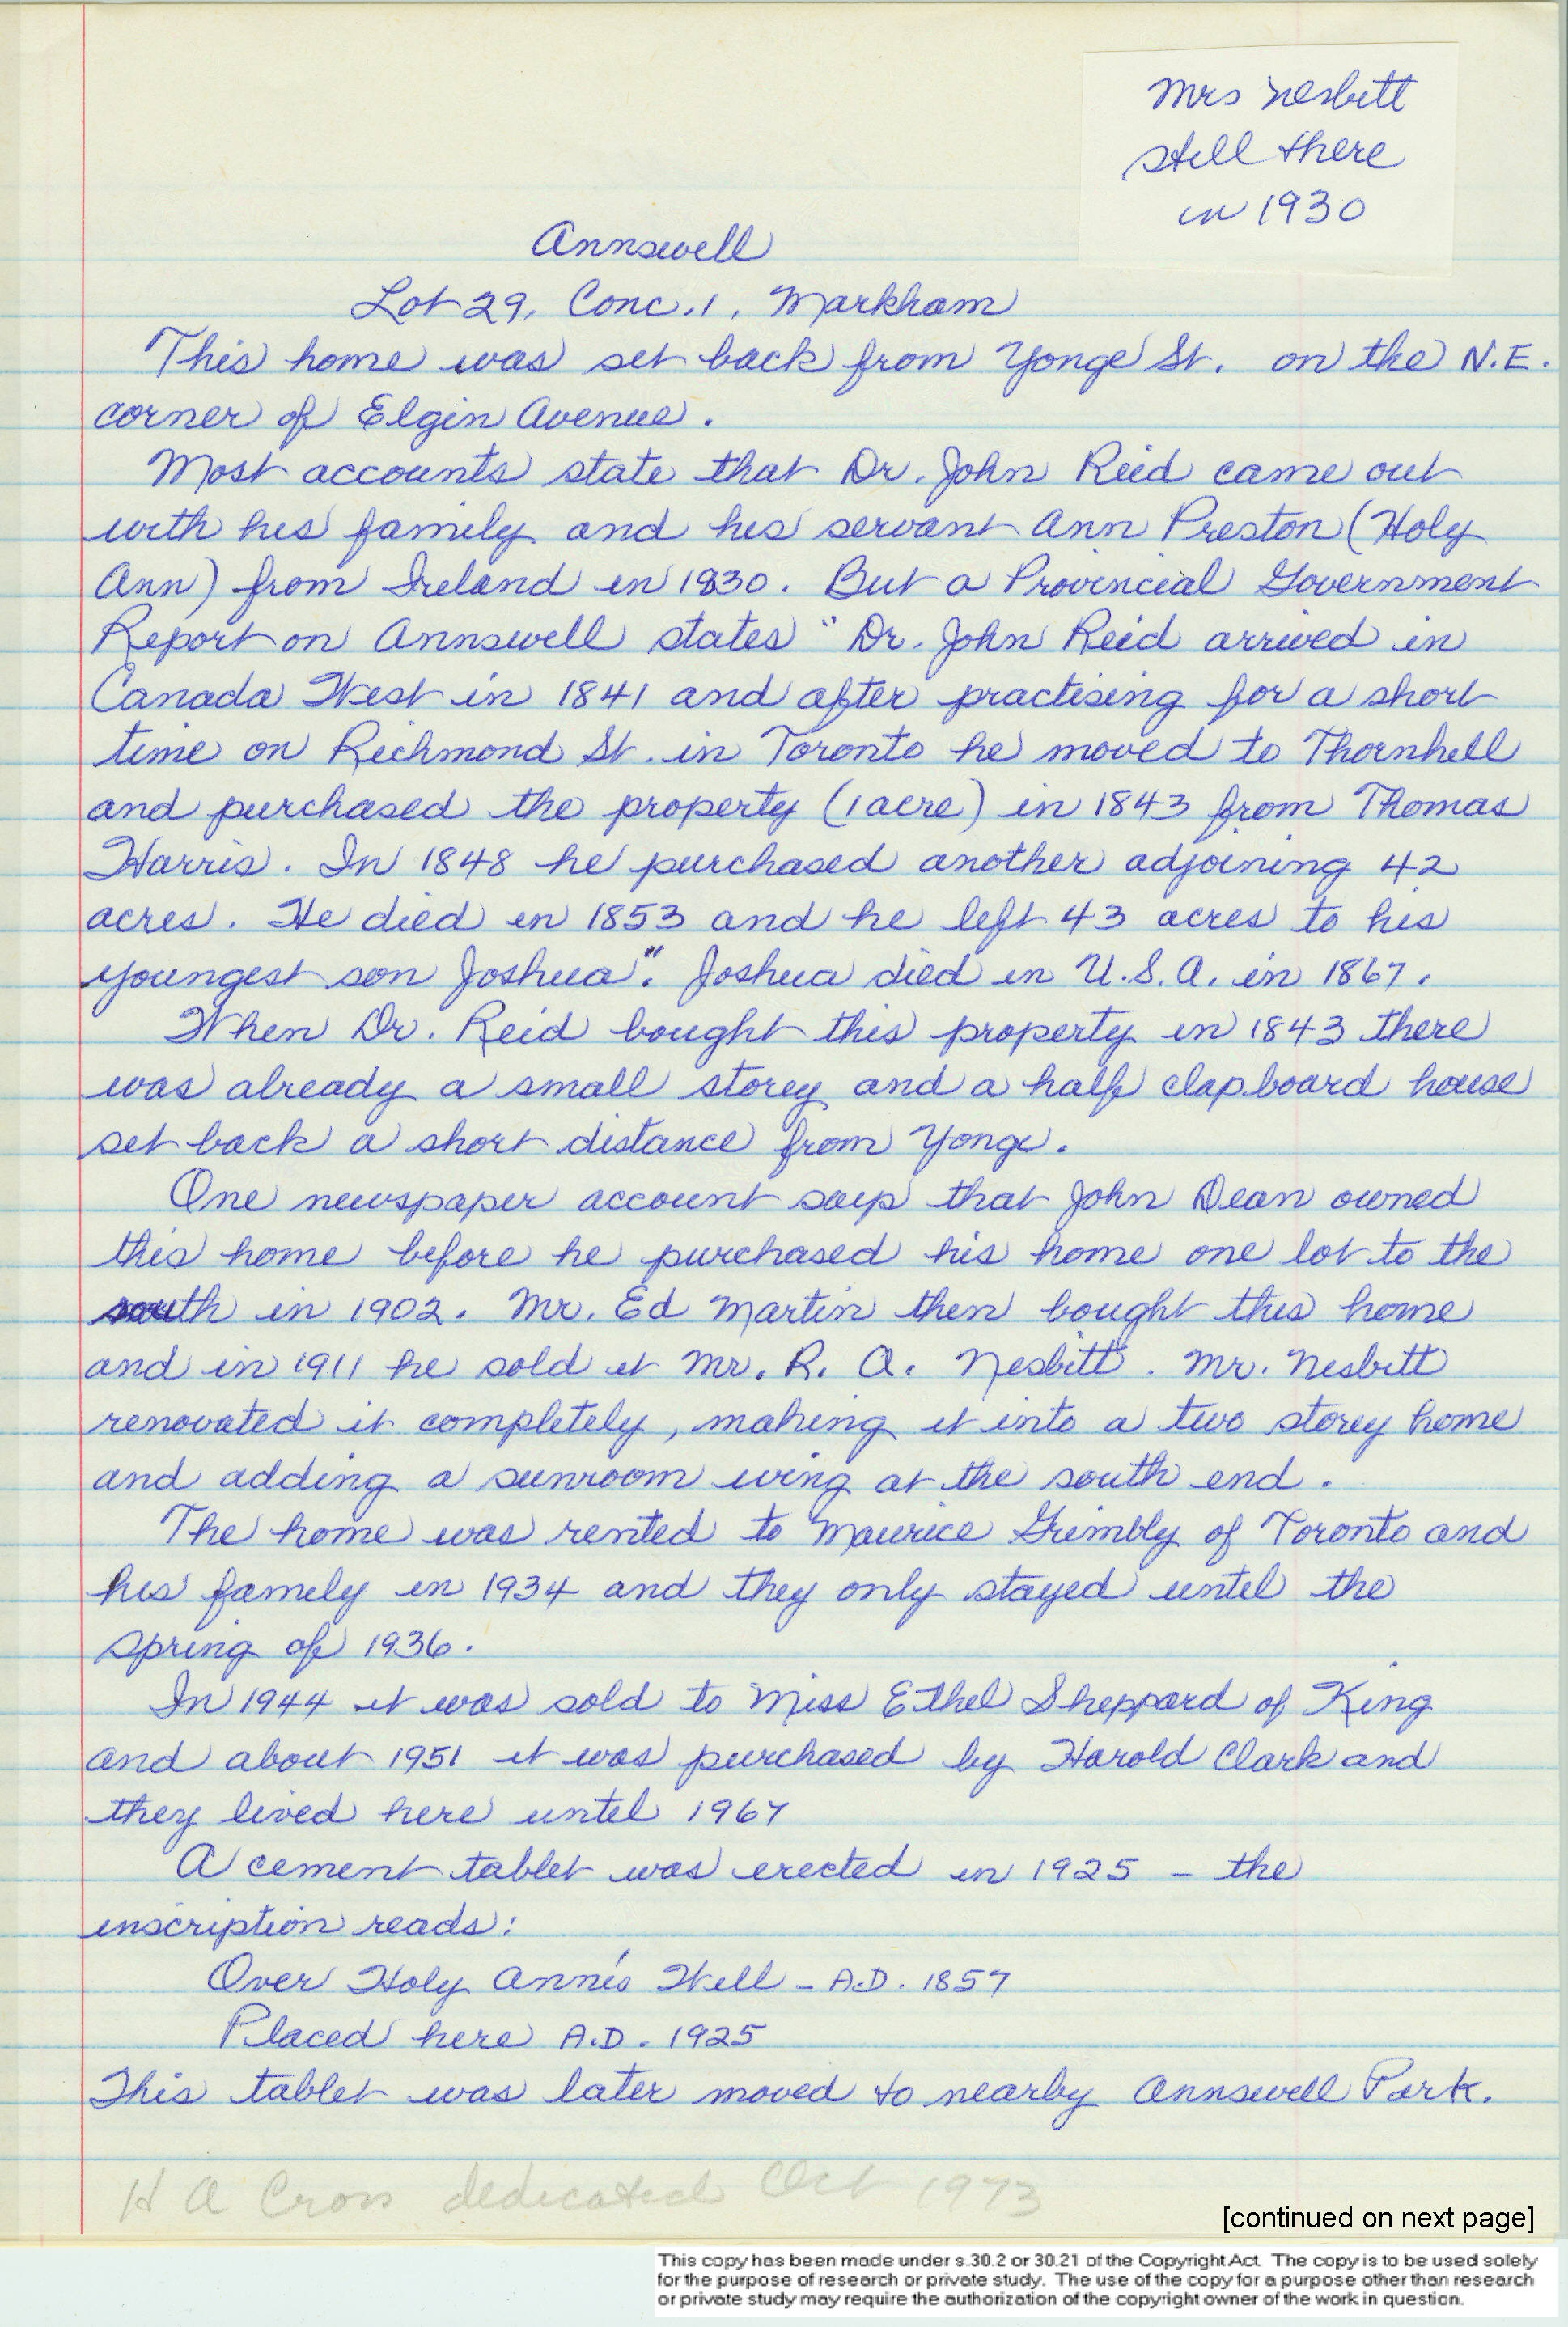 Mrs Nesbitt
still there
in 1930
Annswell
Lot 29, Conc. 1, Markham
This home was set back from Yonge St. on the N.E.
corner of Elgin Avenue.
Most accounts state that Dr. John Reid came out
with his family and his servant Ann Preston (Holy
Ann) from Ireland in 1830. But a Provincial Government
Report on Annswell states "Dr. John Reid arrived in
Canada West in 1841 and after practising for a short
time on Richmond St. in Toronto he moved to Thornhill
and purchased the property (1 acre) in 1843 from Thomas
Harris. In 1848 he purchased another adjoining 42
acres. He died in 1853 and he left 43 acres to his
youngest son Joshua". Joshua died in U.S.A. in 1867.
When Dr. Reid bought this property in 1843 there
was already a small storey and a half clapboard house
set back a short distance from Yonge.
One newspaper account says that John Dean owned
this home before he purchased his home one lot to the
south in 1902. Mr. Ed Martin then bought this home
and in 1911 he sold it Mr. R. A. Nesbitt. Mr. Nesbitt
renovated it completely, making it into a two storey home
and adding a sunroom wing at the south end.
The home was rented to Maurice Grimbly of Toronto and
his family in 1934 and they only stayed until the
spring of 1936.
In 1944 it was sold to Miss Ethel Sheppard of King
and about 1951 it was purchased by Harold Clark and
they lived here until 1967
A cement tablet was erected in 1925 - the
inscription reads:
Over Holy Ann's Well - A.D. 1857
Placed here A.D. 1925
This tablet was later moved to nearby Annswell Park.
H A Cross dedicated Oct 1973
[continued on next page]
This copy has been made under s.30.2 or 30.21 of the Copyright Act. The copy is to be used solely
for the purpose of research or private study. The use of the copy for a purpose other than research
or private study may require the authorization of the copyright owner of the work in question.